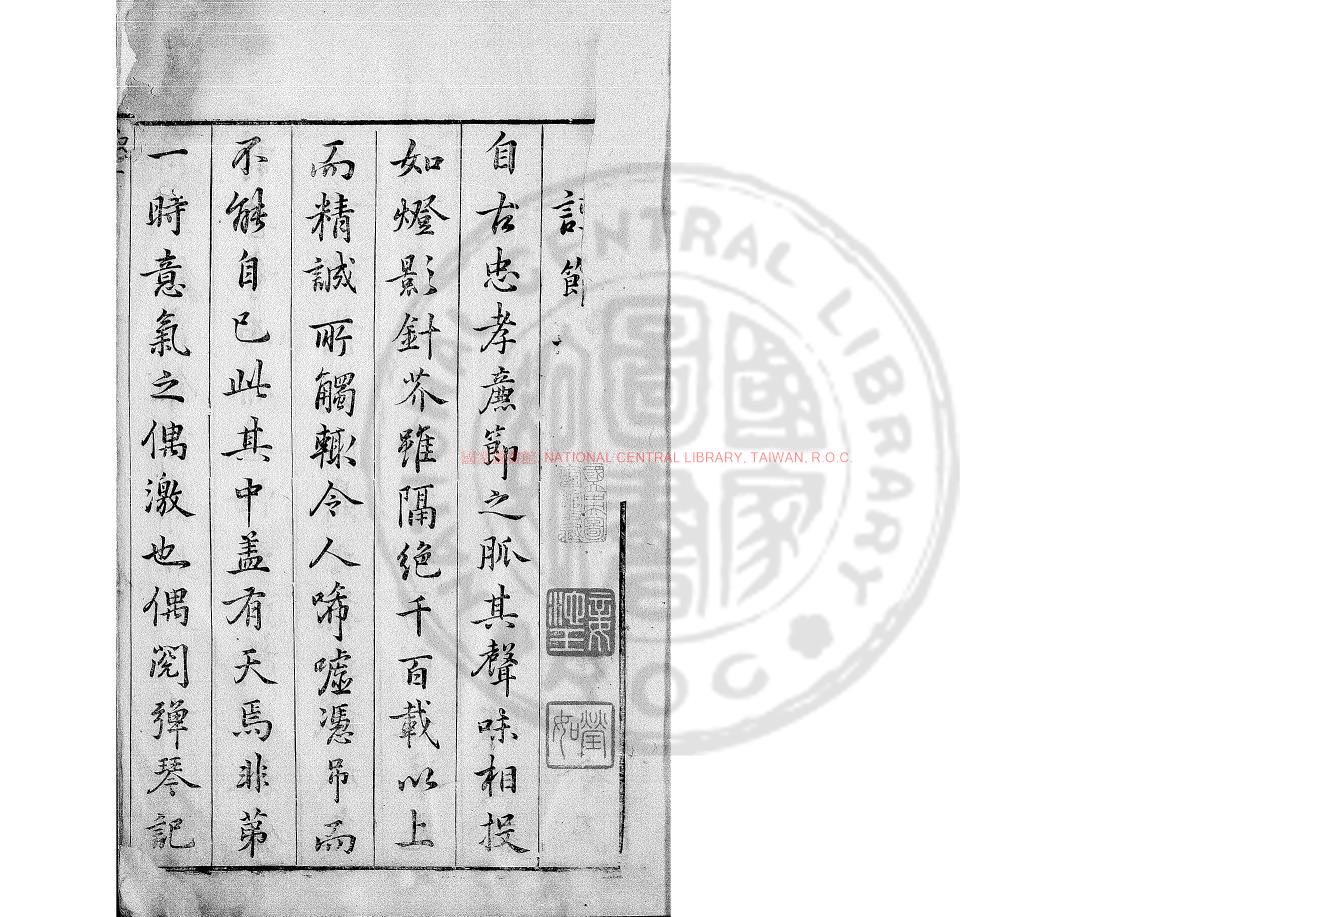 節
自古忠孝廉節之脈其聲味相投
如燈影針芥雖隔絕千百載以上
而精誠所觸輙令人唏噓憑吊而
不能自已此其中盖有天焉非第
一時意氣之偶激也偶閱彈琴記
國家圖書館, NATIONAL CENTRAL LIBRARY, TAIWAN, R.O.C.
NATIONAL CENTRAL LIBRARY
R.O.C.